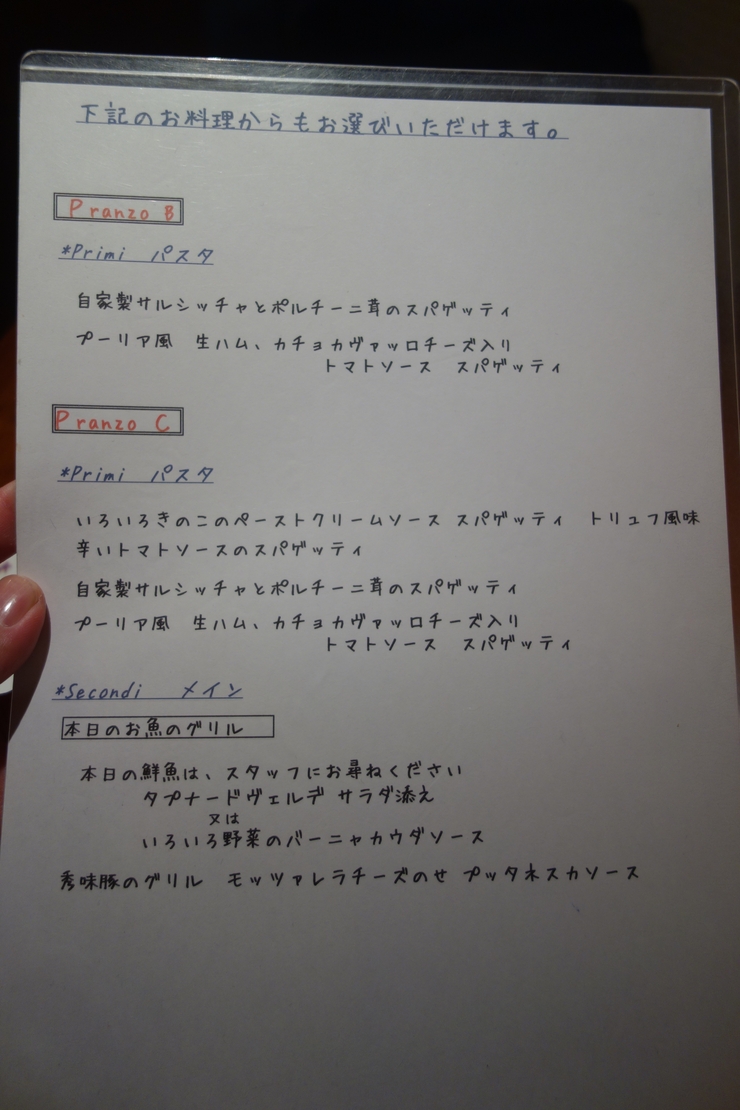 下記のお料理からもお選びいただけます。
Pranzo B
*Primi パスタ
自家製サルシッチャとポルチーニ茸のスパゲッティ
プーリア風 生ハム、カチョカヴァッロチーズ入り
トマトソース スパゲッティ
Pranzo C
*Primi パスタ
いろいろきのこのペーストクリームソース スパゲッティ トリュフ風味
辛いトマトソースのスパゲッティ
自家製サルシッチャとポルチーニ茸のスパゲッティ
プーリア風 生ハム、カチョカヴァッロチーズ入り
トマトソース スパゲッティ
*Secondi メイン
本日のお魚のグリル
本日の鮮魚は、スタッフにお尋ねください
タプナードヴェルデ サラダ添え
又は
いろいろ野菜のバーニャカウダソース
秀味豚のグリル モッツァレラチーズのせ プッタネスカソース